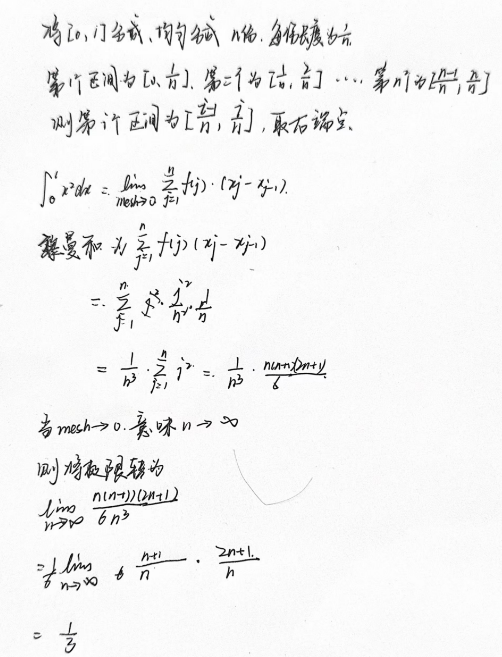 将[0,1]分成、均匀分成 n份. 每份长度为1/n.
第1个区间为[0,1/n]. 第二个为[1/n,2/n] .... 第n个为[n-1/n,n/n]
则第i个区间为[i-1/n,i/n],取右端点.
∫₀¹x²dx = lim mesh→0 Σ j=1 n f(j)·(xj-xj-1).
黎曼和为 Σ j=1 n f(j)(xj-xj-1)
= Σ j=1 n j²/n²·1/n
= 1/n³·Σ j=1 n j² = 1/n³·n(n+1)(2n+1)/6
当mesh→0.意味n→∞
则将极限转为
lim n→∞ n(n+1)(2n+1)/6n³
=1/6 lim n→∞ n+1/n·2n+1/n
= 1/3